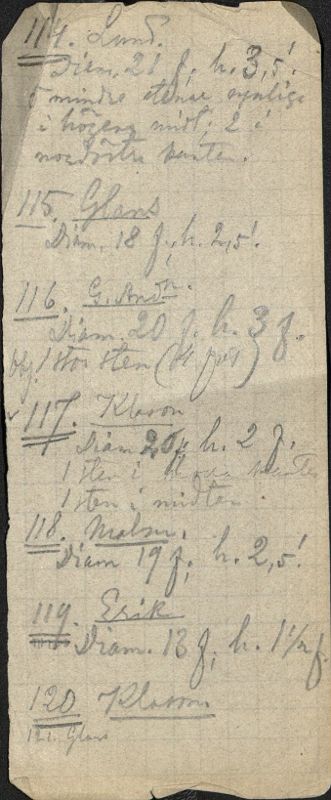 114. Lund.
Diam. 21 f. h. 3,5'.
5 mindre stenar synliga
i högens midt; 2 i
nordöstra kanten.
115. Glans
Diam. 18 f., h. 2,5'.
116. G. Andn.
Diam. 20 f. h. 3 f.
Obj. 1 stor sten
117. Klason
Diam. h. 2 f.
1 sten i kanten
1 sten i midten.
118.
Diam 19 f, h. 2,5'.
119. Erik
Diam. 13 f, h. 1 1/2 f
120 Klason
121. Glans